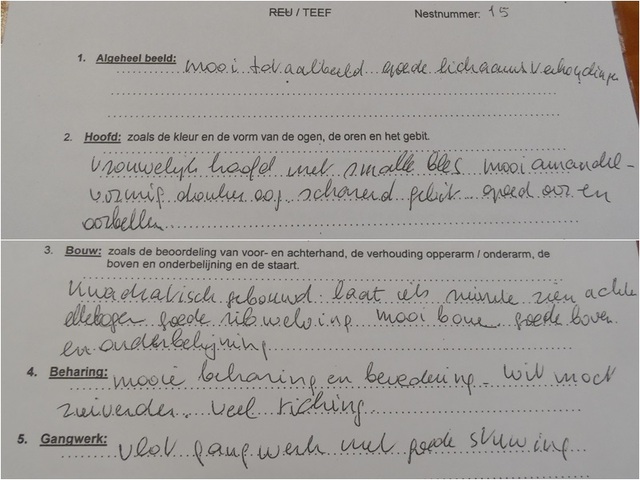 REU / TEEF Nestnummer: 15
1. Algeheel beeld: mooi totaalbeeld goede lichaamsverhoudingen
2. Hoofd: zoals de kleur en de vorm van de ogen, de oren en het gebit.
vrouwelijk hoofd met smalle bles mooi amandel-
vormig donker oog scharend gebit goed oor en
oorbellen
3. Bouw: zoals de beoordeling van voor- en achterhand, de verhouding opperarm / onderarm, de
boven en onderbelijning en de staart.
Kwadratisch gebouwd laat iets ruimte zien achter
ellebogen goede ribwelving mooi bone goede boven
en onderbelijning
4. Beharing: mooie beharing en bevedering - wit mocht
zuiverder veel ticking
5. Gangwerk: vlot gangwerk met goede stuwing